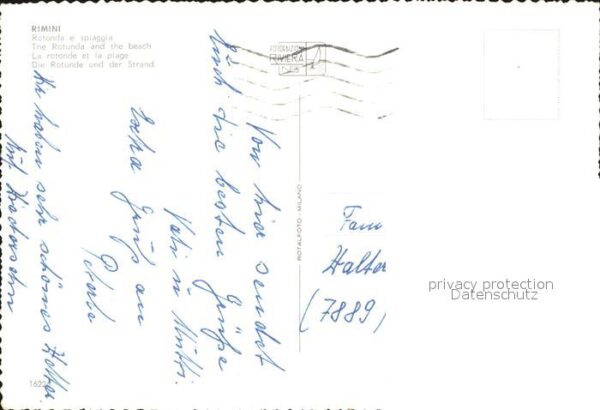 RIMINI
Rotonda e spiaggia
The Rotunda and the beach
La rotonde et la plage
Die Rotunde und der Strand
RIVIERA
Von hier sendet
Euch die besten Grüße
Vati u. Mutti.
Extra Gruß an
Wir haben sehr schönes Wetter.
Auf Wiedersehn
ROTALFOTO MILANO
Fam
Halter
(7889)
privacy protection
Datenschutz
162